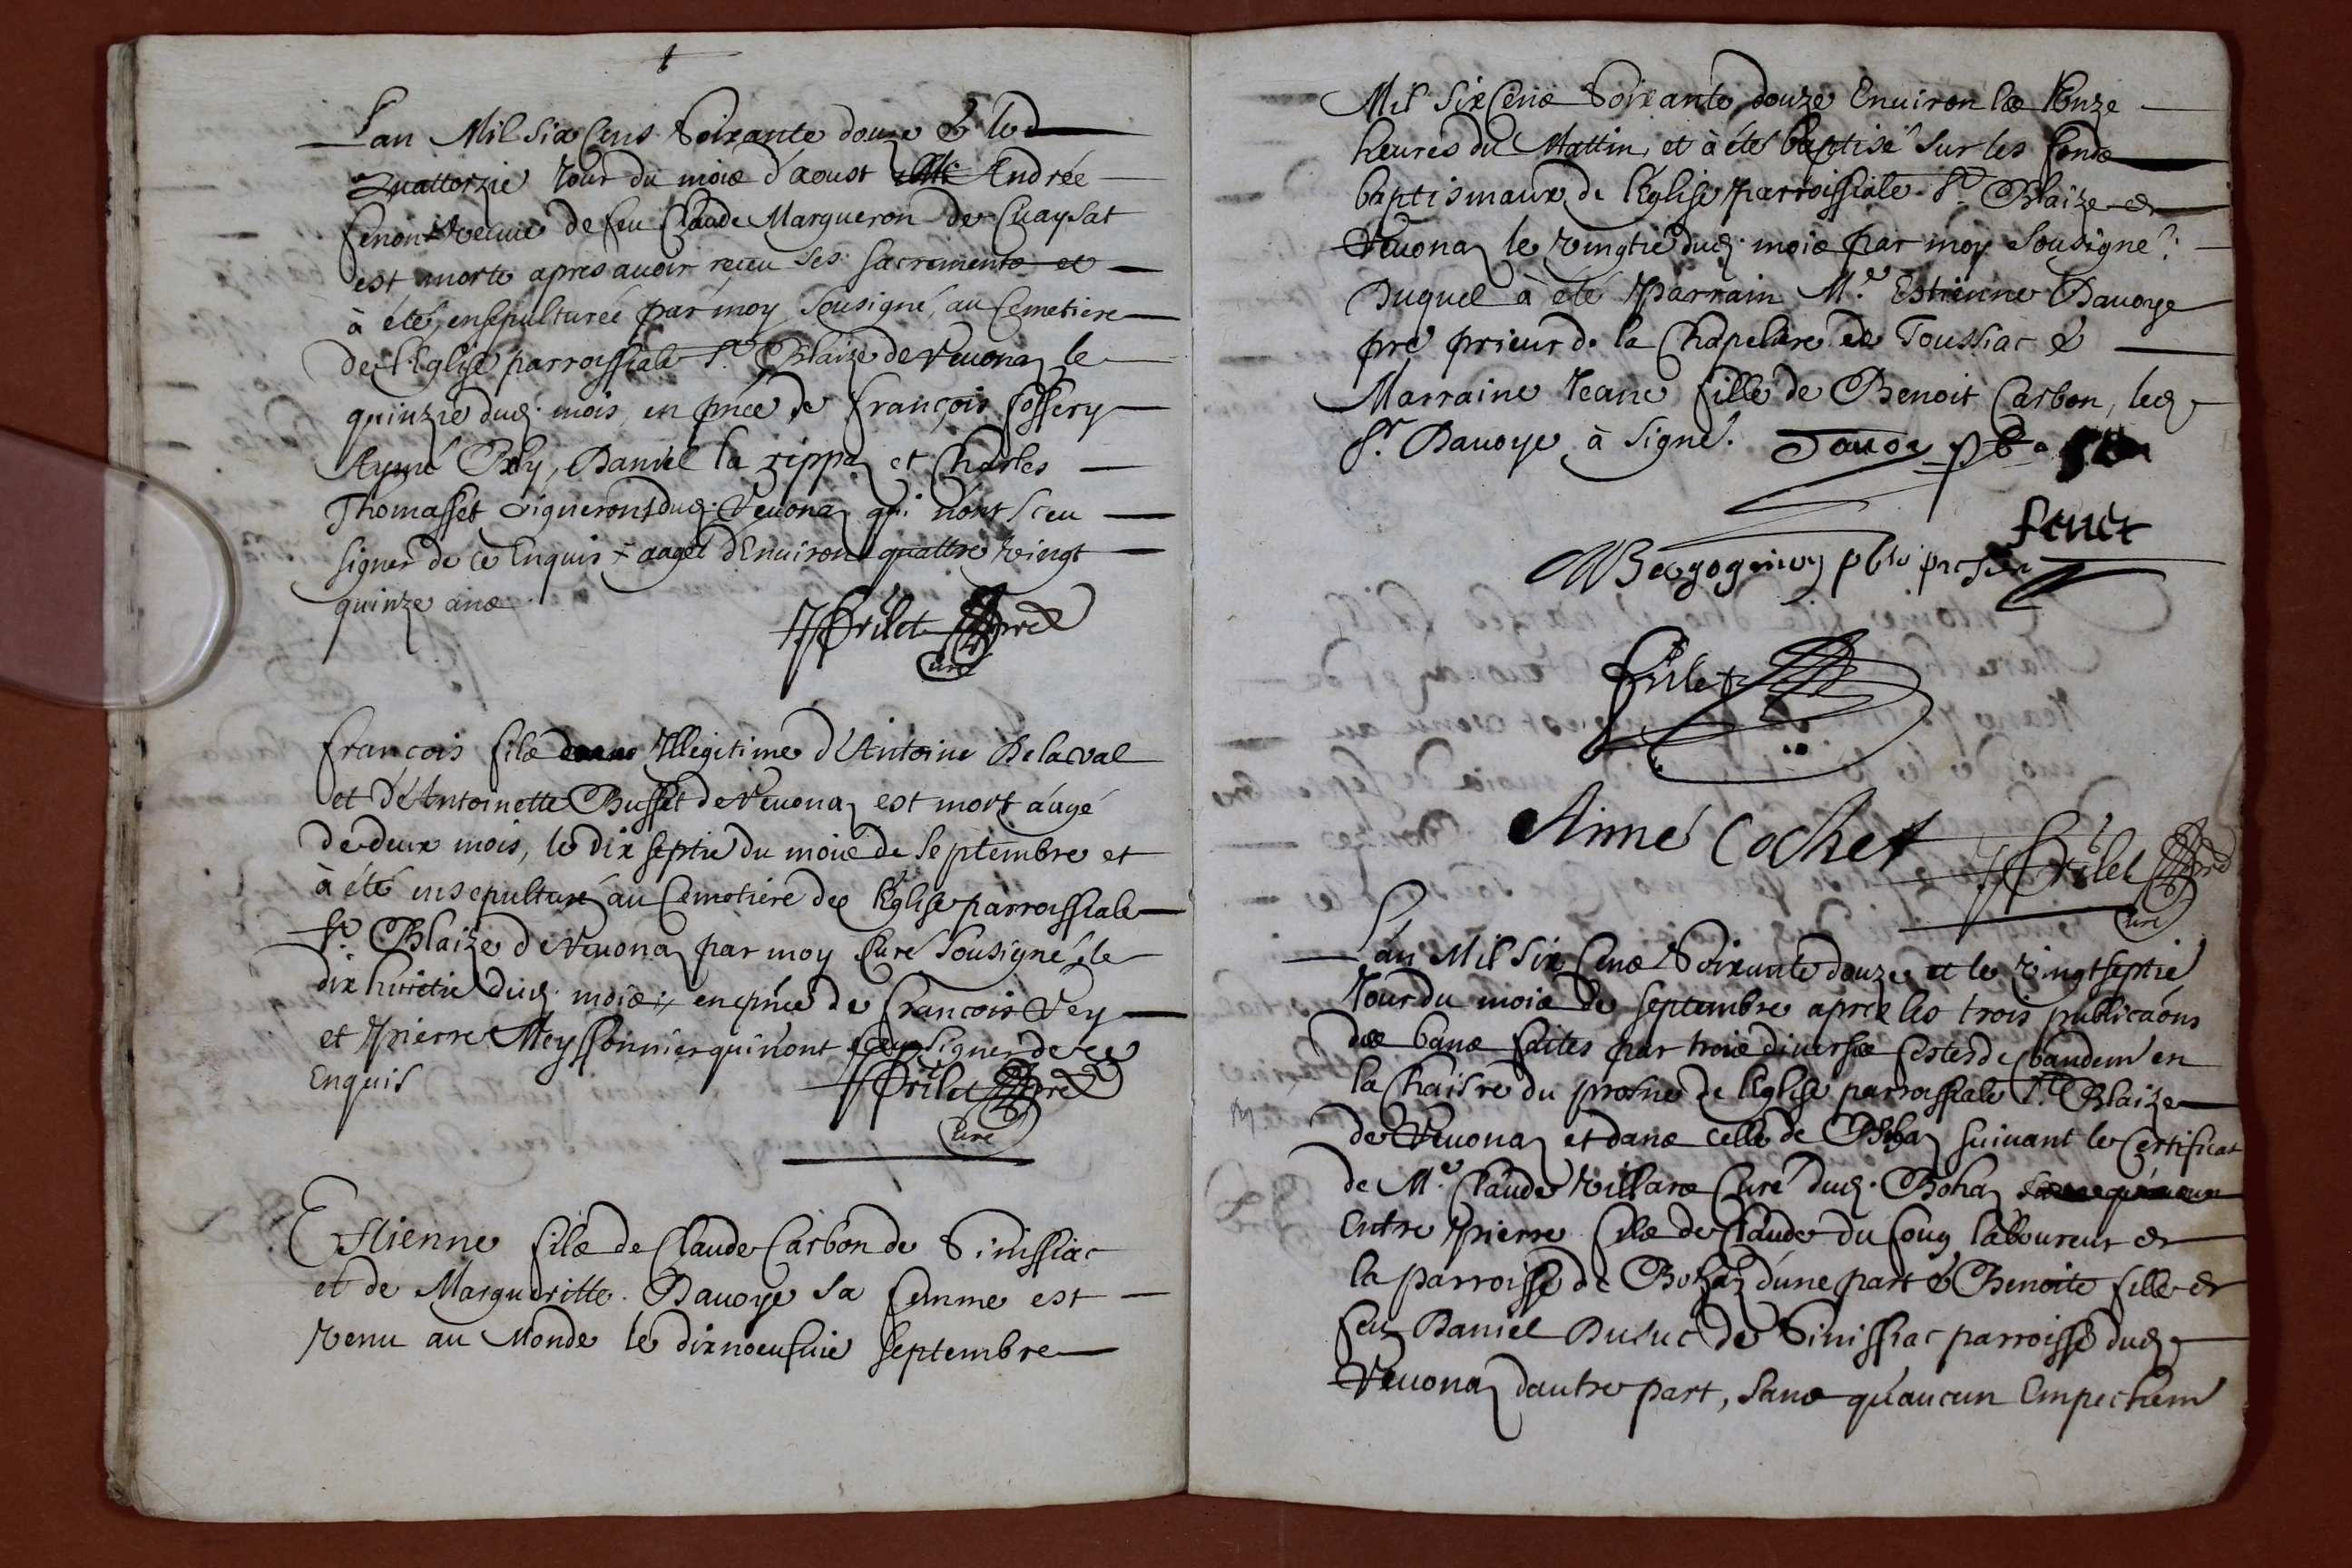 L'an Mil six Cens Soixante douze & le
Quattorzie Iour du mois d'aoust Andrée
fenon veuue de feu Claude Margueron de Cuaysat
est morte apres auoir receu ses sacrements et
à été ensepulturée par moy sousigné, au Cemetiere
de l'Eglise parroissiale St. Blaize de Veuonaz le
quinzie dud. mois, en pnce de françois fossery
Aymé Oly, Daniel la rippaz et Charles
Thomasset vignerons dud. Veuonaz qui n'ont sceu
signer de ce Enquis + aagée d'Enuiron quattre vingt
quinze ans
Frilet pre
Curé
françois fils Illegitime d'Antoine Delaval
et d'Antoinette Busset de Veuonaz est mort aagé
de deux mois, le dix septie du mois de septembre et
à été ensepulturé au Cemetiere de l'Eglise parroissiale
St. Blaize de Veuonaz par moy Curé sousigné le
dix huictie dud. mois, en pnce de françois Vey
et Pierre Meyssonnier qui n'ont sceu signer de ce
Enquis
Frilet pre
Curé
Estienne fils de Claude Carbon de Sinissiac
et de Margueritte Dauoye sa femme est
venu au Monde le dix noeufuie septembre
Mil six Cens Soixante douze Enuiron les Unze
heures du Mattin, et à été baptisé sur les fonds
baptismaux de l'Eglise parroissiale St. Blaize de
Veuonaz le vingtie dud. mois par moy sousigné.
Duquel à été Parrain Mre Estienne Dauoye
pre prieur de la Chapelare de Toussiac &
Marraine Jeane fille de Benoit Carbon, led.
Sr. Dauoye à signé. Dauoye pbr
fenet
Bergognieu pbr pnt
frilet
Aimé Cochet
Frilet pre
Curé
L'an Mil six Cens Soixante douze et le vingt septie
Iour du mois de septembre apres les trois publicaons
des bans faites par trois diuerses festes de Comandem en
la Chaisre du prosne de l'Eglise parroissiale St. Blaize
de Veuonaz et dans celle de Bohaz suiuant le Certificat
de Mre Claude Villars Curé dud. Bohaz
Entre Pierre fils de Claude du fouy laboureur de
la parroisse de Bohaz d'une part & Benoite fille de
feu Daniel Dusuc de Sinissiac parroisse dud.
Veuonaz dautre part, sans qu'aucun Empechem